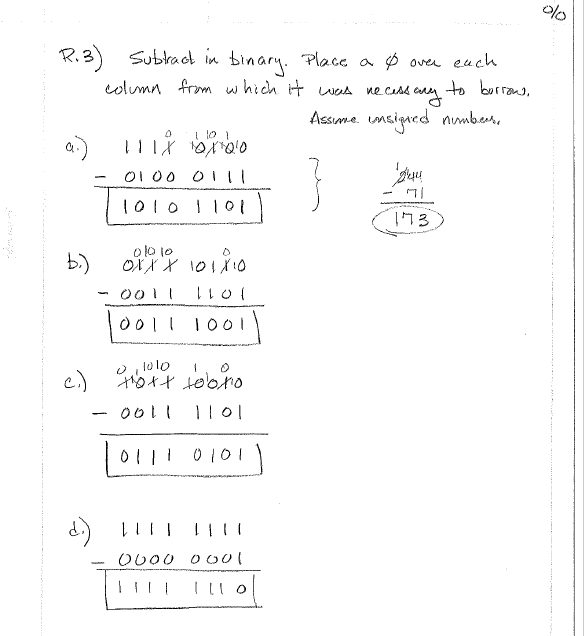 0/0
R.3) Subtract in binary. Place a 0 over each
column from which it was necessary to borrow.
Assume unsigned numbers.
a.) 1111 0100
- 0100 0111
1010 1101
244
- 71
173
b.)
- 0011 1101
0011 1001
c.)
- 0011 1101
0111 0101
d.) 1111 1111
- 0000 0001
1111 1110